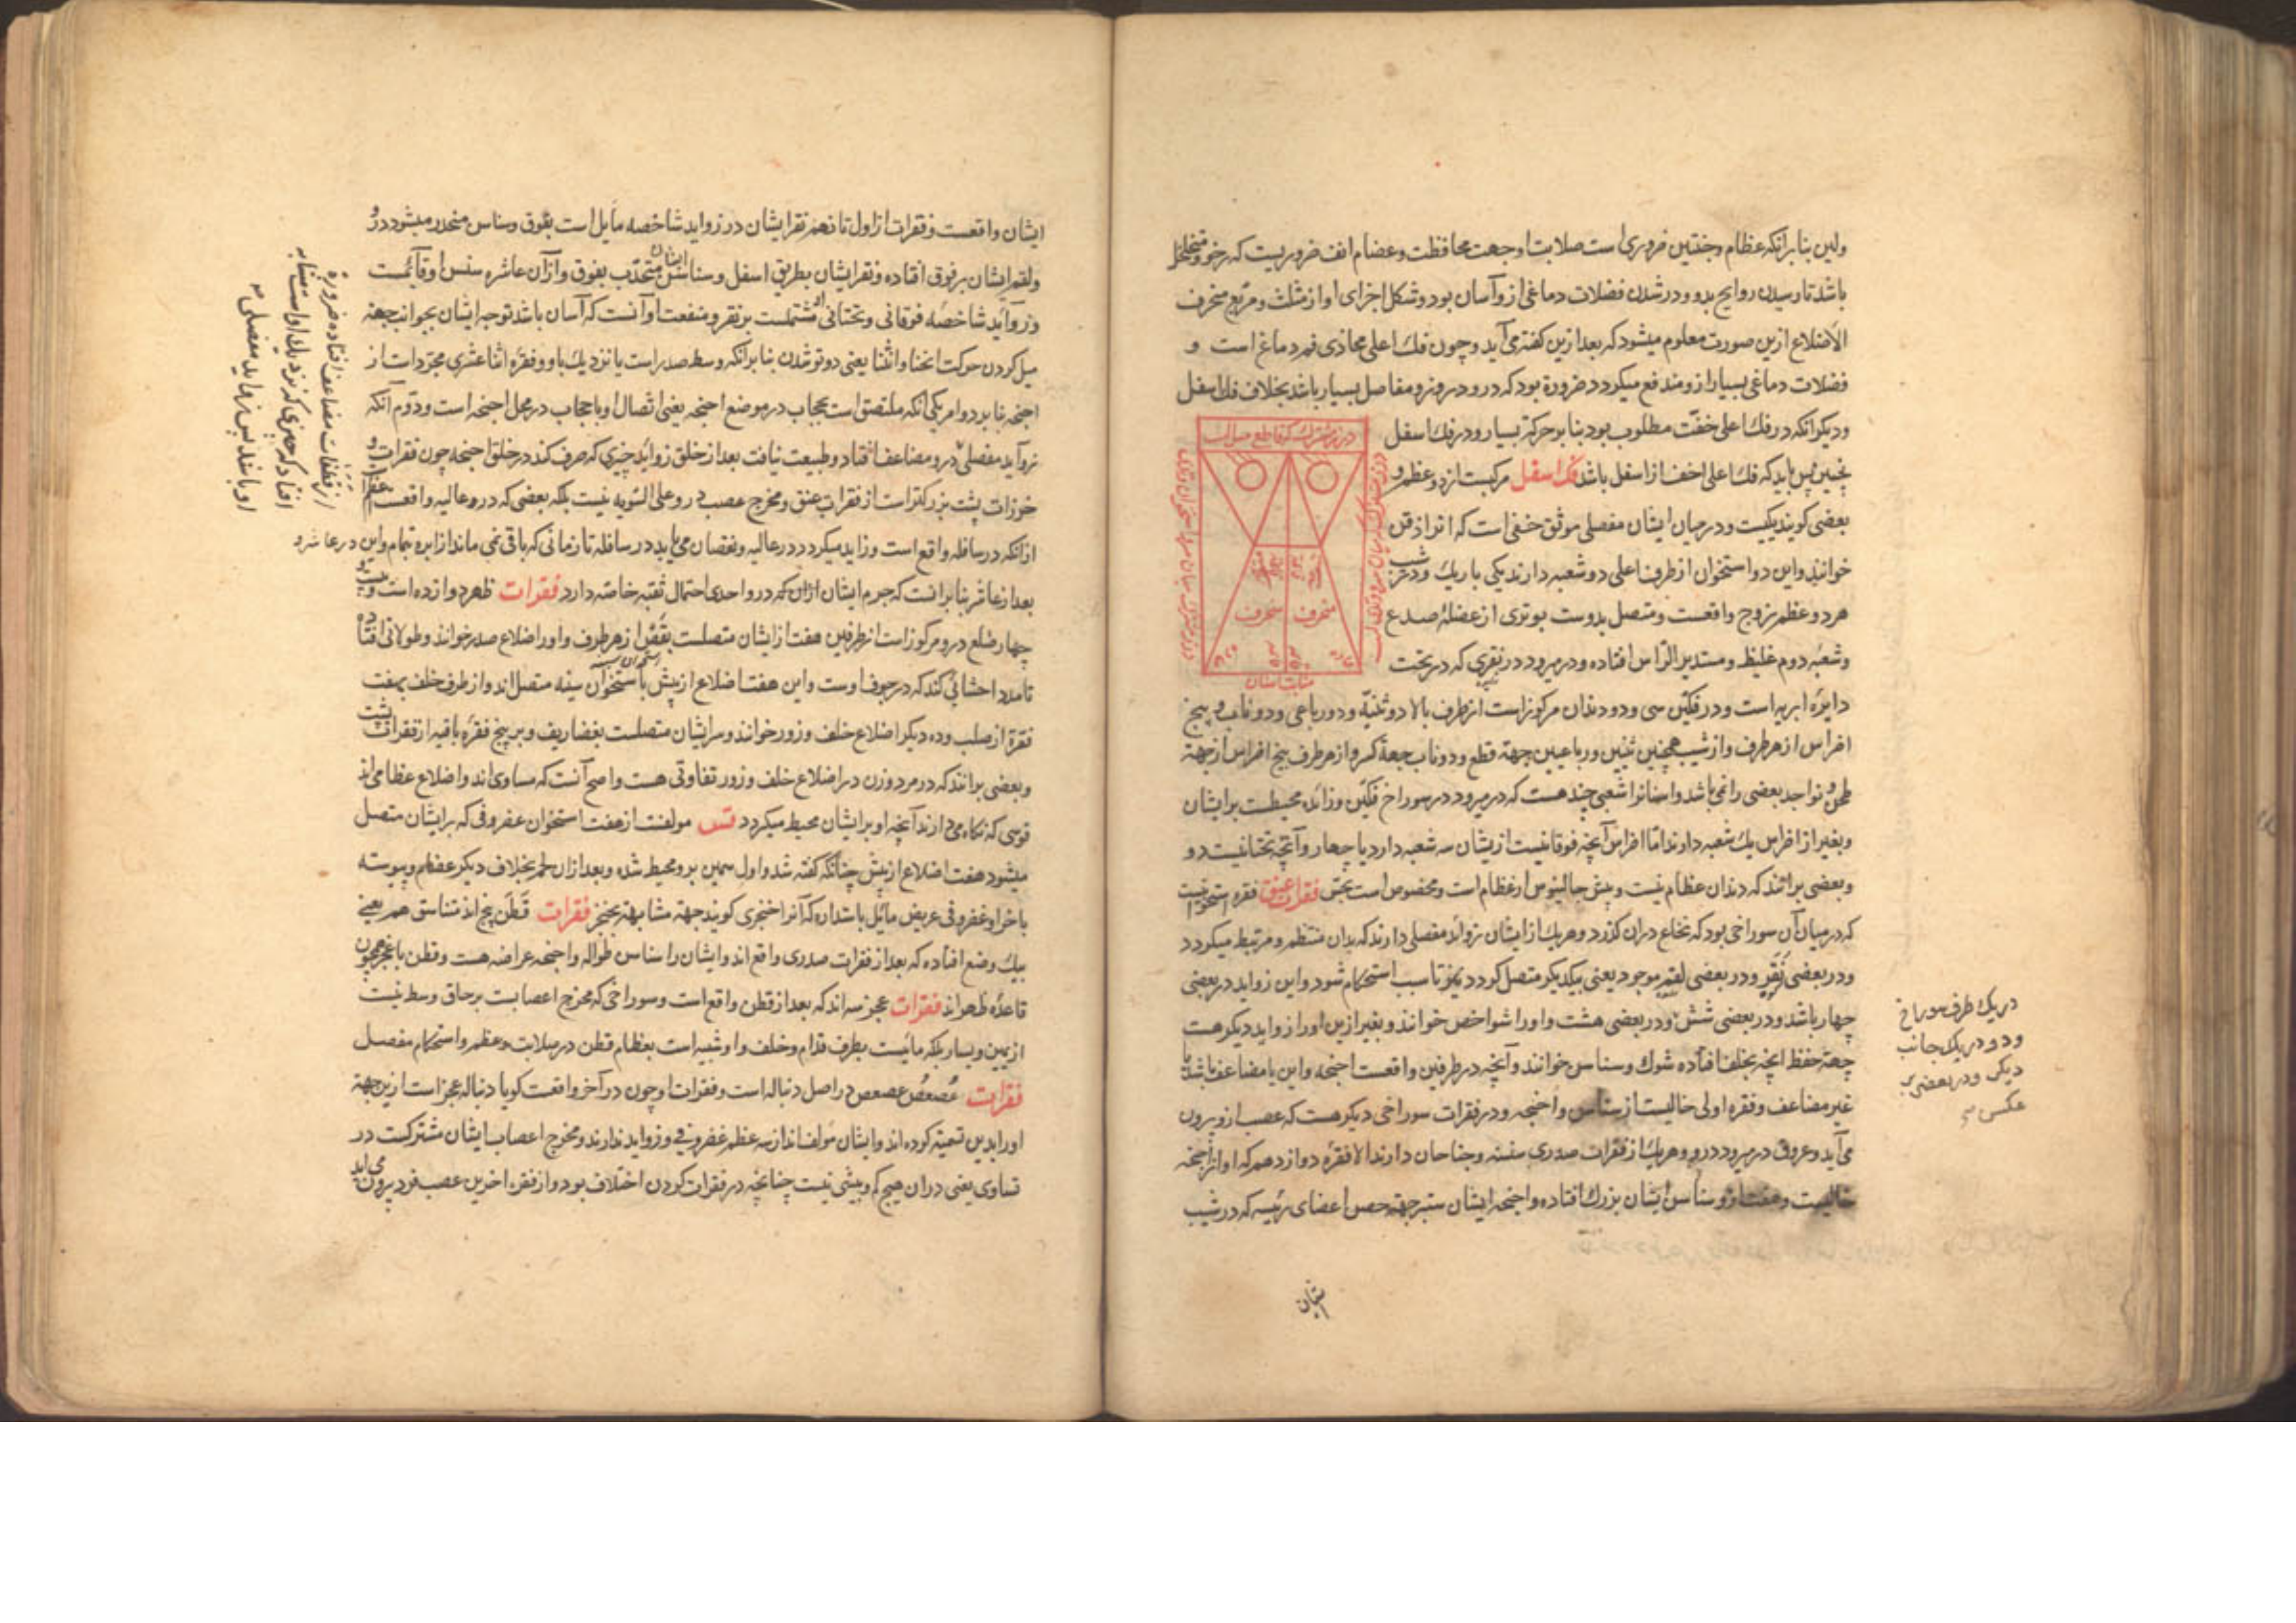 ولین بنا برانکه عظام وجنتین ضروری است صلابت او جهت محافظت وعضام انف ضروریست که رخو ومتخلخل
باشد تا رسیدن روایح بدو ودر شدن فضلات دماغی ازو آسان بود وشکل اجزای او از مثلث ومربع منحرف
الاضلاع ازین صورت معلوم میشود که بعد ازین کفته می آید وچون فك اعلی محاذی فم دماغ است و
فضلات دماغی بسیار ازو مندفع میکردد ضرورة بود که درو دروز ومفاصل بسیار باشد بخلاف فك اسفل
ودیکر انکه در فك اعلی خفّت مطلوب بود بنا بر حرکة بسیار ودر فك اسفل
پس باید که فك اعلی اخف از اسفل باشد فك اسفل مرکبست از دو عظم و
بعضی کویند یکیست ودر میان ایشان مفصلی موثق خفی است که انرا ذقن
خوانند واین دو استخوان از طرف اعلی دو شعبه دارند یکی باریك ودر
هر دو عظم زوج واقعست ومتصل بدوست بوتری از عضلۀ صدغ
وشعبۀ دوم غلیظ ومستدیر الرّاس افتاده ودر میرود در نقری که در تحت
دایرۀ ابریه است ودر فکین سی ودو دندان مرکوز است از طرف بالا دو ثنیّه ودو رباعی ودو ناب و پنج
اضراس از هر طرف واز شیب همچنین ثنیین ورباعیین جهة قطع ودو ناب جهة کسر واز هر طرف پنج اضراس از جهة
طحن ونواجد بعضی را نمی باشد واسنانرا شعبی چند هست که در میرود در سوراخ فکین وزائده محیطست بر ایشان
وبغیر از اضراس یك شعبه دارند امّا اضراس آنچه فوقانیست ازیشان سه شعبه دارد یا چهار وآنچه تحتانیست دو
وبعضی برانند که دندان عظام نیست وپیش جالینوس از عظام است ومخصوص است بحس فقرات عنق فقره استخوانیست
که در میان آن سوراخی بود که نخاع دران کذرد وهریك از ایشان زوائد مفصلی دارند که بدان منتظم ومرتبط میکردد
ودر بعضی نُقَر ودر بعضی لقم موجود یعنی بیکدیکر متصل کردد تا سبب استحکام شود واین زواید در بعضی
چهار باشد ودر بعضی شش ودر بعضی هشت واورا شواخص خوانند وبغیر ازین اورا زواید دیکر هست
جهة حفظ انچه بخلف افتاده شوك وسناسن خوانند وآنچه در طرفین واقعست اجنحه واین یا مضاعف باشد یا
غیر مضاعف وفقره اولی خالیست از سناسن واجنحه ودر فقرات سوراخی دیکر هست که عصب ازو بیرون
می آید وعروق در میرود درو وهریك از فقرات صدری سنسنه وجناحان دارند الا فقرۀ دوازدهم که او از اجنحه
خالیست وهفت ازو سناسن ایشان بزرك افتاده واجنحۀ ایشان ستبر جهة حصن اعضای رئیسه که در شیب
ایشان
منحرف
منحرف
منابت اسنان
در یك طرف سوراخ
ودو در یك جانب
دیکر ودر بعضی
عکس
ایشان واقعست وفقرات از اول تا نهم نقر ایشان در زواید شاخصه مایل است بفوق وسناسن منحدر میشود درو
ولقم ایشان بر فوق افتاده ونقر ایشان بطریق اسفل وسناسن ایشان متحدّب بفوق واز آن عاشره سنسن او قائمست
وزوآید شاخصه فوقانی وتحتانی او مشتملست بر نقر ومنفعت او آنست که آسان باشد توجه ایشان بجوانب جهة
میل کردن حرکت انحنا وانثنا یعنی دوتو شدن بنا برانکه وسط صدر است یا نزدیك باو وفقره اثنا عشری مجرّد است از
اجنحه بنا بر دو امر یکی آنکه ملتصق است بحجاب در موضع اجنحه یعنی اتصال او با حجاب در محل اجنحه است ودوّم آنکه
زوآید مفصلی درو مضاعف افتاد وطبیعت نیافت بعد از خلق زواید چیزی که صرف کند در خلق اجنحه چون فقرات و
خرزات پشت بزرکتر است از فقرات عنق ومخرج عصب درو علی السّویه نیست بلکه بعضی که درو عالیه واقعست
ازآنکه در سافله واقع است وزاید میکردد در عالیه ونقصان می یابد در سافله تا زمانی که باقی نمی ماند از ابره تمام واین در عاشر و
بعد از عاشر بنا برانست که جرم ایشان ازان که در واحدی احتمال ثقبه خاصّه دارد فقرات ظهر دوازده است و
چهار ضلع درو مرکوز است از طرفین هفت از ایشان متصلست بقَصّ از هر طرف واورا اضلاع صدر خوانند وطولانی افتاده
تا مدد احشائی کند که در جوف اوست واین هفت اضلاع از پیش با استخوان سینه متصل اند واز طرف خلف بهفت
فقرة از صلب وده دیکر اضلاع خلف وزور خوانند وسر ایشان متصلست بغضاریف وبر پنج فقره باقیه از فقرات پشت
وبعضی برانند که در مرد وزن در اضلاع خلف وزور تفاوتی هست واصح آنست که مساوی اند واضلاع عظامی اند
قوسی که نکاه می دارند آنچه او بر ایشان محیط میکردد قس مولفست از هفت استخوان غضروفی که بر ایشان متصل
میشود هفت اضلاع از پیش چنانکه کفته شد واول سمین برو محیط شده وبعد ازان لحم بخلاف دیکر عظام وپیوسته
باخر او غضروفی عریض مائل باستداره که آنرا خنجری کویند جهة مشابهة بخنجر فقرات قَطَن پنج اند متناسق هم یعنی
بیك وضع افتاده که بعد از فقرات صدری واقع اند وایشان را سناسن طواله واجنحه عراضه هست وقطن با عجز همچون
قاعدۀ ظهر اند فقرات عجز سه اند که بعد از قطن واقع است وسوراخی که مخرج اعصابست بر حاق وسط نیست
از یمین ویسار بلکه مایلست بطرف قدام وخلف واو شبیه است بعظام قطن در صلابت وعظم واستحکام مفصل
فقرات عُصعُص عصعص در اصل دنباله است وفقرات او چون در آخر واقعست کویا دنباله عجز است ازین جهة
اورا بدین تسمیه کرده اند وایشان مولف اند از سه عظم غضروفی وزواید ندارند ومخرج اعصاب ایشان مشترکست در
تساوی یعنی دران هیچ کم وبیشی نیست چنانچه در فقرات کردن اختلاف بود واز فقره اخرین عصب فرد بیرون می آید